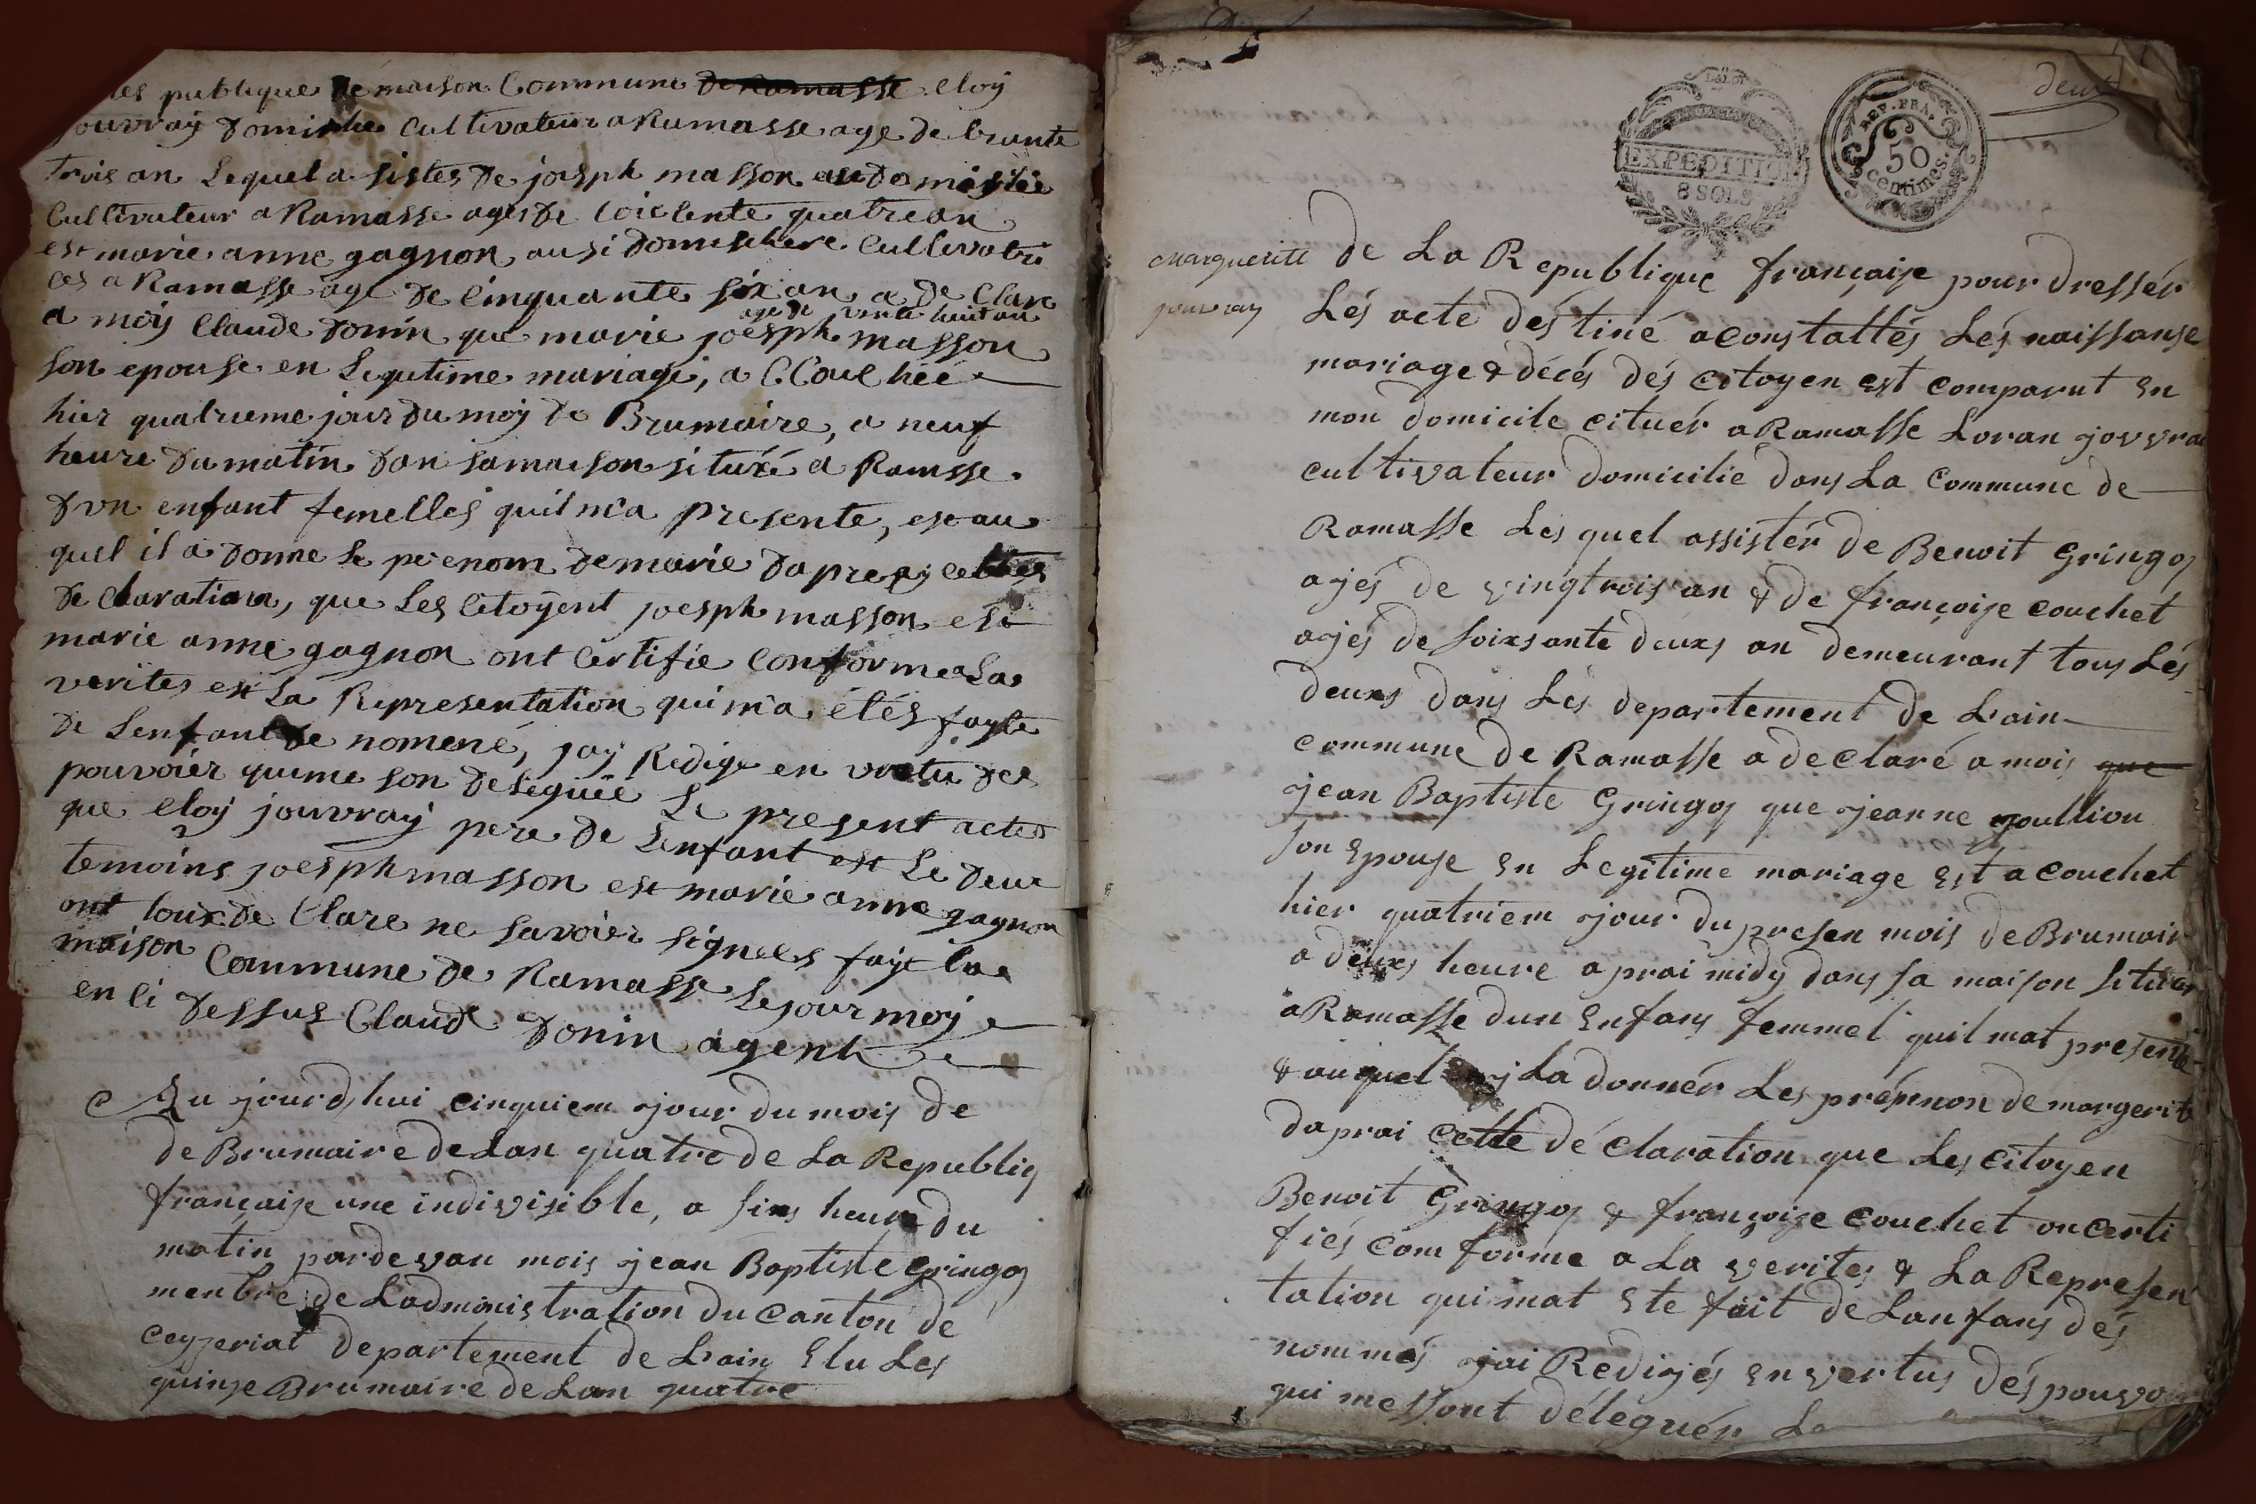 les publique de maison Commune de Ramasse eloÿ
jouvraÿ domislie Cultivateur a Ramasse age de trante
trois an Lequel a sistes de joesph masson domisliée
Cultivateur a Ramasse ages de quatre an
est marie anne gagnon ausi domisliere Cultivatri
ces a Ramasse age de Cinquante six an a de Clare
age de vinte huit an
a moiÿ Claude donin que marie joesph masson
son epouse en Legitime mariage, a CCouchéé
hier quatrieme jour du moÿ de Brumaire, a neuf
heure du matin dan sa maison situéé a Ramsse
dun enfant femelles quil ma presente, est au
quel il a donne Le prenom de marie daprest
de claration, que Les Citoÿent joesph masson est
marie anne gagnon ont Certifie Conforme a La
verites est La Representation qui ma étés fayte
de Lenfant de nomené, jaÿ Redige en vretu des
pouvoiér qui me son deleguéé Le present actes
que eloÿ jouvraÿ pere de Lenfant est Le deux
temoins joesph masson est marie anne gagnon
ont toux de Clare ne savoir signees fayt La
maison Commune de Ramasse Le jour moÿ
en Ci dessus Claud donin agent
Au jourdhui cinquiem jour du mois de
de Brumaire de Lan quatre de La Republiq
françaize une indivisible, a sixs heure du
matin parde van mois jean Baptiste Gringoz
menbre de Ladministration du canton de
ceyzeriat departement de Lain Elu Les
quinze Brumaire de Lan quatre
deux
LA LOI
EXPEDITION
8 SOLS
REP. FRA.
50
centimes.
marguerite
jouvray
de La Republique françaize pour dressér
Lés acte déstiné a constattés Lés naissanse
mariage & décés dés citoyen est comparut en
mon domicile cituér a Ramasse Loran jouvrai
cultivateur domicilié dans La Commune de
Ramasse Lesquel assistér de Benoit Gringoz
ajés de vingtrois an & de françoize couchet
ajés de soixsante deuxs an demeurant tous Lés
deuxs dans Les departement de Lain
commune de Ramasse a declaré a mois que
jean Baptiste Gringoz que jeanne goullion
son Epouze en Legitime mariage est a couchet
hier quatriem jour du presen mois de Brumair
a deuxs heure a prai midy dans sa maison situér
a Ramasse dun enfans femmel quil mat presente
& auquel La donnér Les prénnon de margerite
daprai cette dé claration que Les citoyen
Benoit Gringoz & françoize couchet on certi
fiés com forme a La verites & La Represen
tation qui mat Ete fait de Lanfans dés
nommés jai Redigés en vertus dés pouvoir
qui me ssont déléguér Le